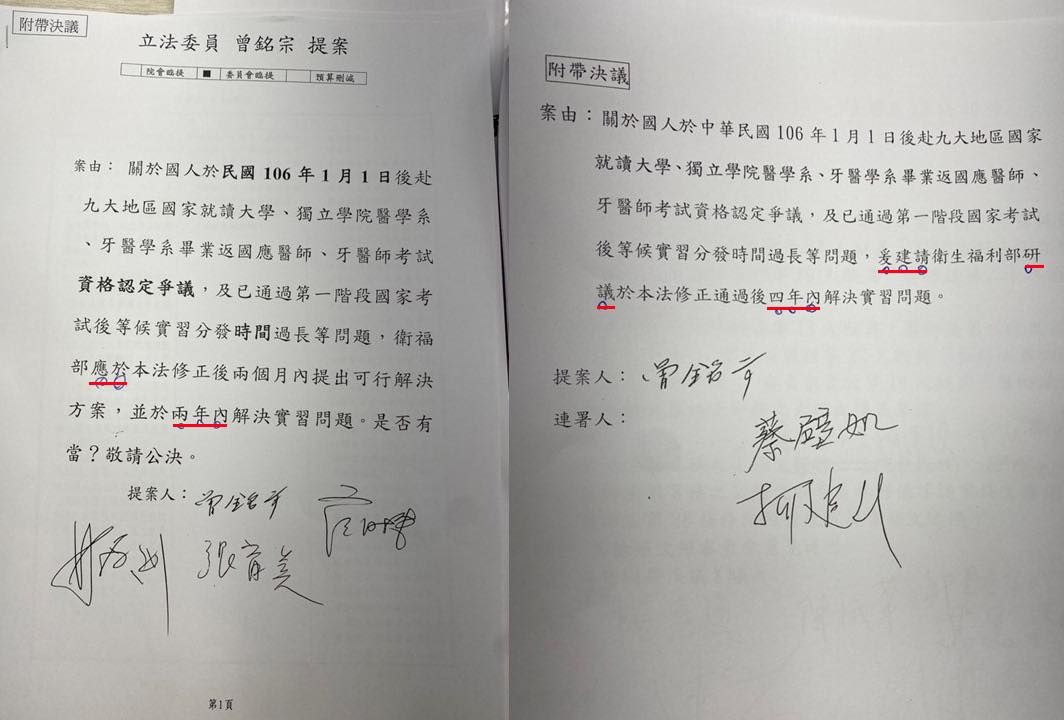 附帶決議
立法委員 曾銘宗 提案
院會臨提 ■ 委員會臨提 預算刪減
案由： 關於國人於民國 106 年 1 月 1 日後赴
九大地區國家就讀大學、獨立學院醫學系
、牙醫學系畢業返國應醫師、牙醫師考試
資格認定爭議，及已通過第一階段國家考
試後等候實習分發時間過長等問題，衛福
部應於本法修正後兩個月內提出可行解決
方案，並於兩年內解決實習問題。是否有
當？敬請公決。
提案人：曾銘宗
張育美
第1頁
附帶決議
案由：關於國人於中華民國 106 年 1 月 1 日後赴九大地區國家
就讀大學、獨立學院醫學系、牙醫學系畢業返國應醫師、
牙醫師考試資格認定爭議，及已通過第一階段國家考試
後等候實習分發時間過長等問題，爰建請衛生福利部研
議於本法修正通過後四年內解決實習問題。
提案人：曾銘宗
連署人：
蔡壁如
柯建人